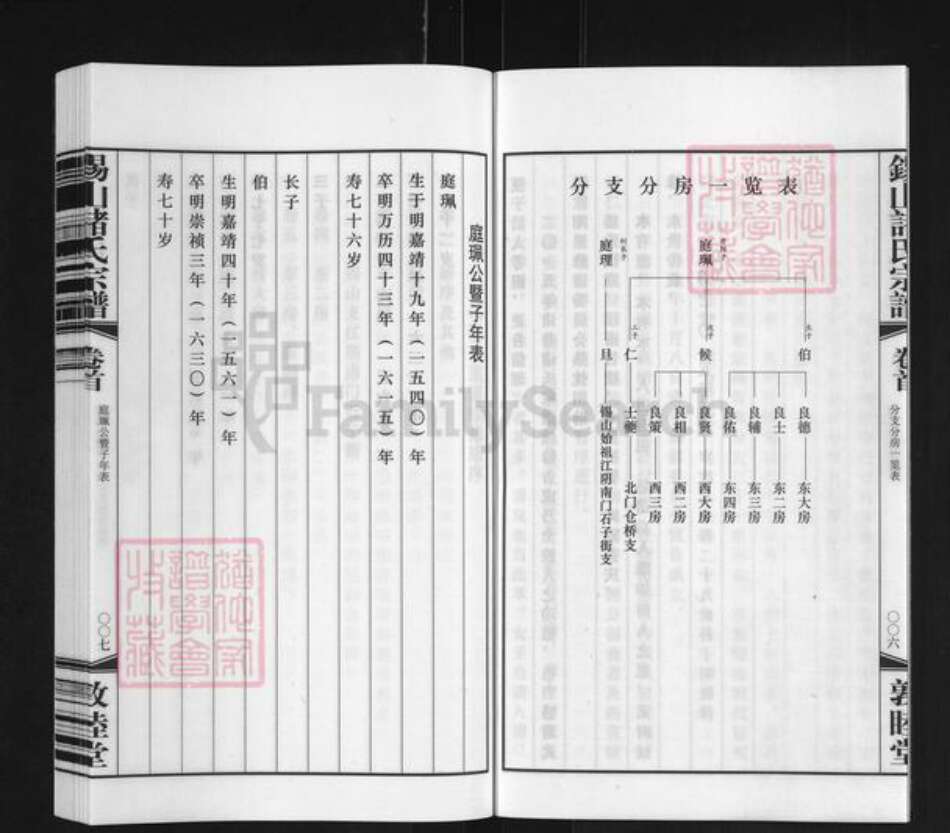 錫山諸氏宗譜
卷首
分支分房一览表
〇〇六
敦睦堂
分支分房一览表
长子
伯
良德
东大房
良士
东二房
良辅
东三房
良佑
东四房
庭珮
次子
候
良贤
西大房
良相
西二房
良策
西三房
三子
仁
士夔
北门仓桥支
庭理
旦
锡山始祖江阴南门石子街支
庭珮公暨子年表
庭珮
生于明嘉靖十九年（一五四〇）年
卒明万历四十三年（一六一五）年
寿七十六岁
长子
伯
生明嘉靖四十年（一五六一）年
卒明崇祯三年（一六三〇）年
寿七十岁
錫山諸氏宗譜
卷首
庭珮公暨子年表
〇〇七
敦睦堂
FamilySearch